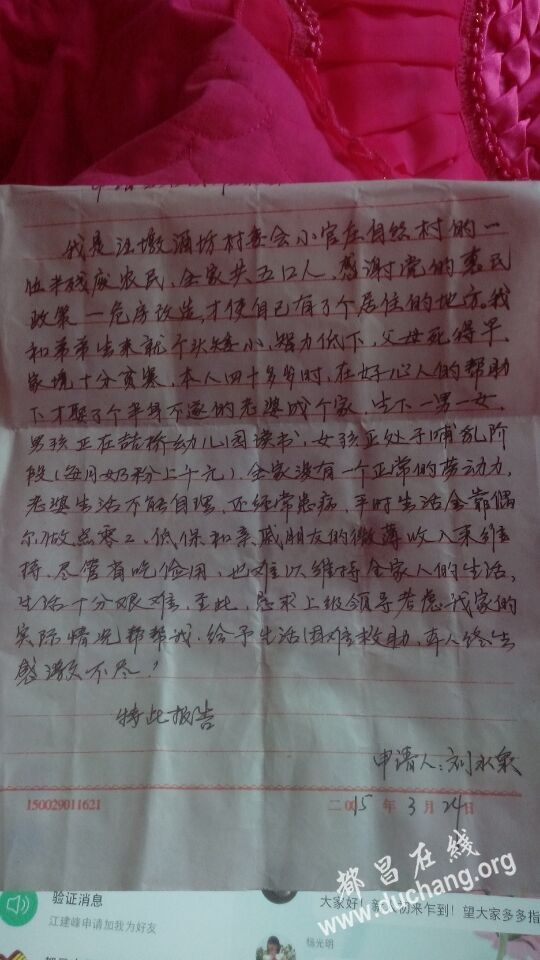 我是汪墩酒坊村委会小官庄自然村的一
位半残废农民,全家共五口人,感谢党的惠民
政策一危房改造,才使自己有了个居住的地方。我
和弟弟生来就个头矮小,智力低下,父母死得早,
家境十分贫寒,本人四十多岁时,在好心人的帮助
下才娶了个半身不遂的老婆成个家,生下一男一女,
男孩正在喆桥幼儿园读书,女孩正处于哺乳阶
段(每月奶粉上千元),全家没有一个正常的劳动力,
老婆生活不能自理,还经常患病,平时生活全靠偶
尔做点零工,低保和亲戚朋友的微薄收入来维
持,尽管省吃俭用,也难以维持全家人的生活,
生活十分艰难,至此,恳求上级领导考虑我家的
实际情况帮帮我,给予生活困难救助,本人终生
感激不尽!
特此报告
申请人:刘永泉
150029011621 二〇15年3月24日
都昌在线
www.duchang.org
验证消息
江建峰申请加我为好友
大家好!新 初来乍到!望大家多多指
杨光明